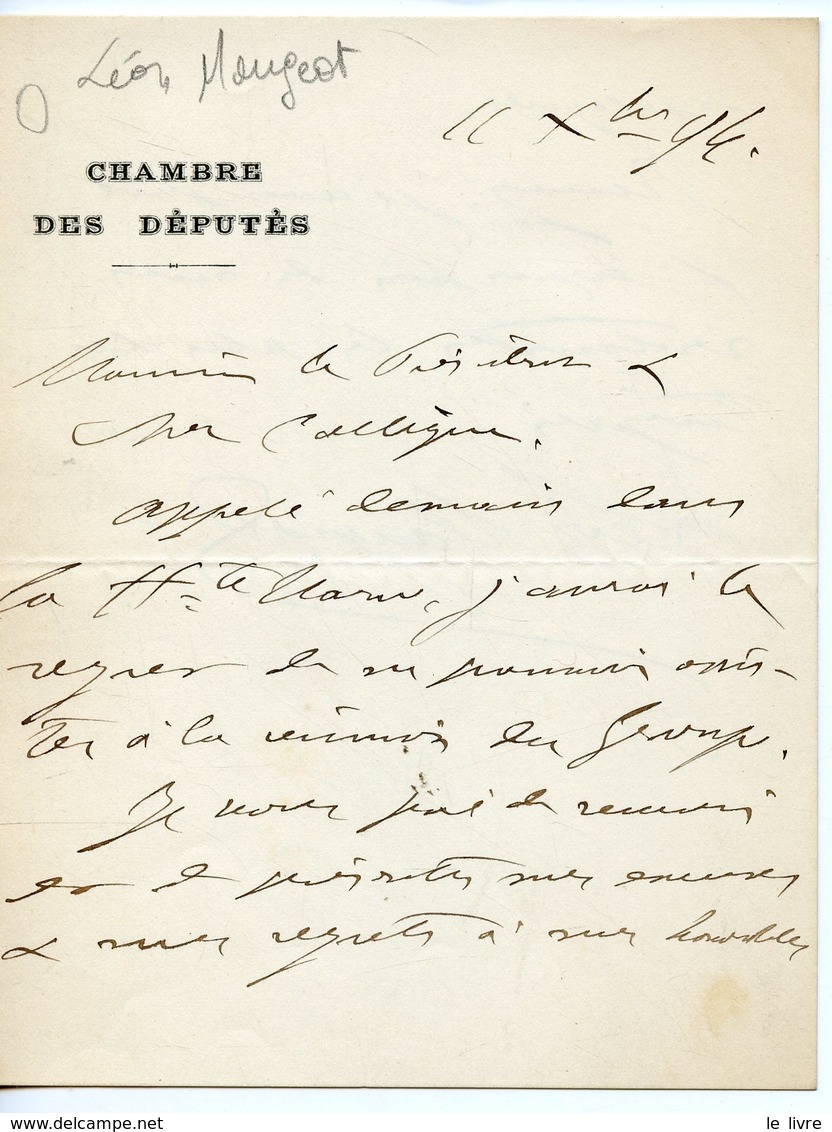 Léon Mougeot
11 Xbre 94.
CHAMBRE
DES DÉPUTÉS
Monsieur le Président &
cher Collègue.
appelé demain dans
la Hte Marne, j'aurai le
regret de ne pouvoir assis-
ter à la réunion du Groupe.
Je vous prie de recevoir
et de présenter mes excuses
& mes regrets à mes honorables
le livre